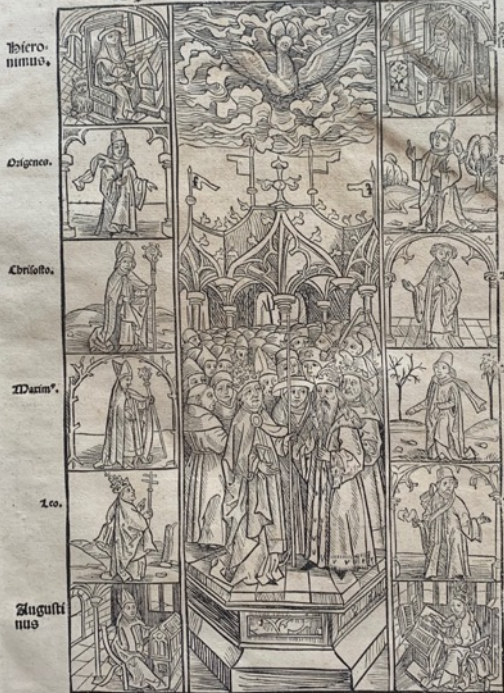 Hiero-
nimus.
Origenes.
Chrisosto.
Maximꝰ.
Leo.
Augusti
nus